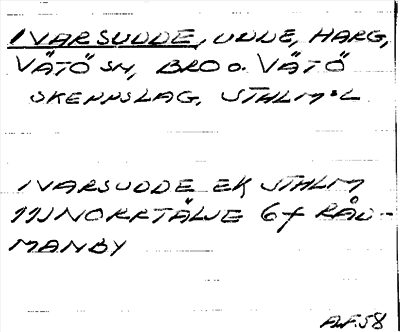 IVARSUDDE, UDDE, HARG,
VÄTÖ SN, BRO O. VÄTÖ
SKEPPSLAG, STHLMS L
IVARSUDDE EK STHLM
11J NORRTÄLJE 6f RÅD-
MANBY
A.F. 58